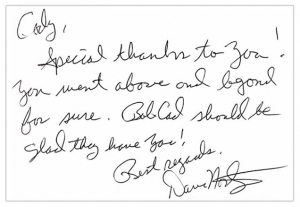 Cody,
Special thanks to You!
You went above and beyond
for sure. BobCad should be
glad they have You!
Best regards.
Dave